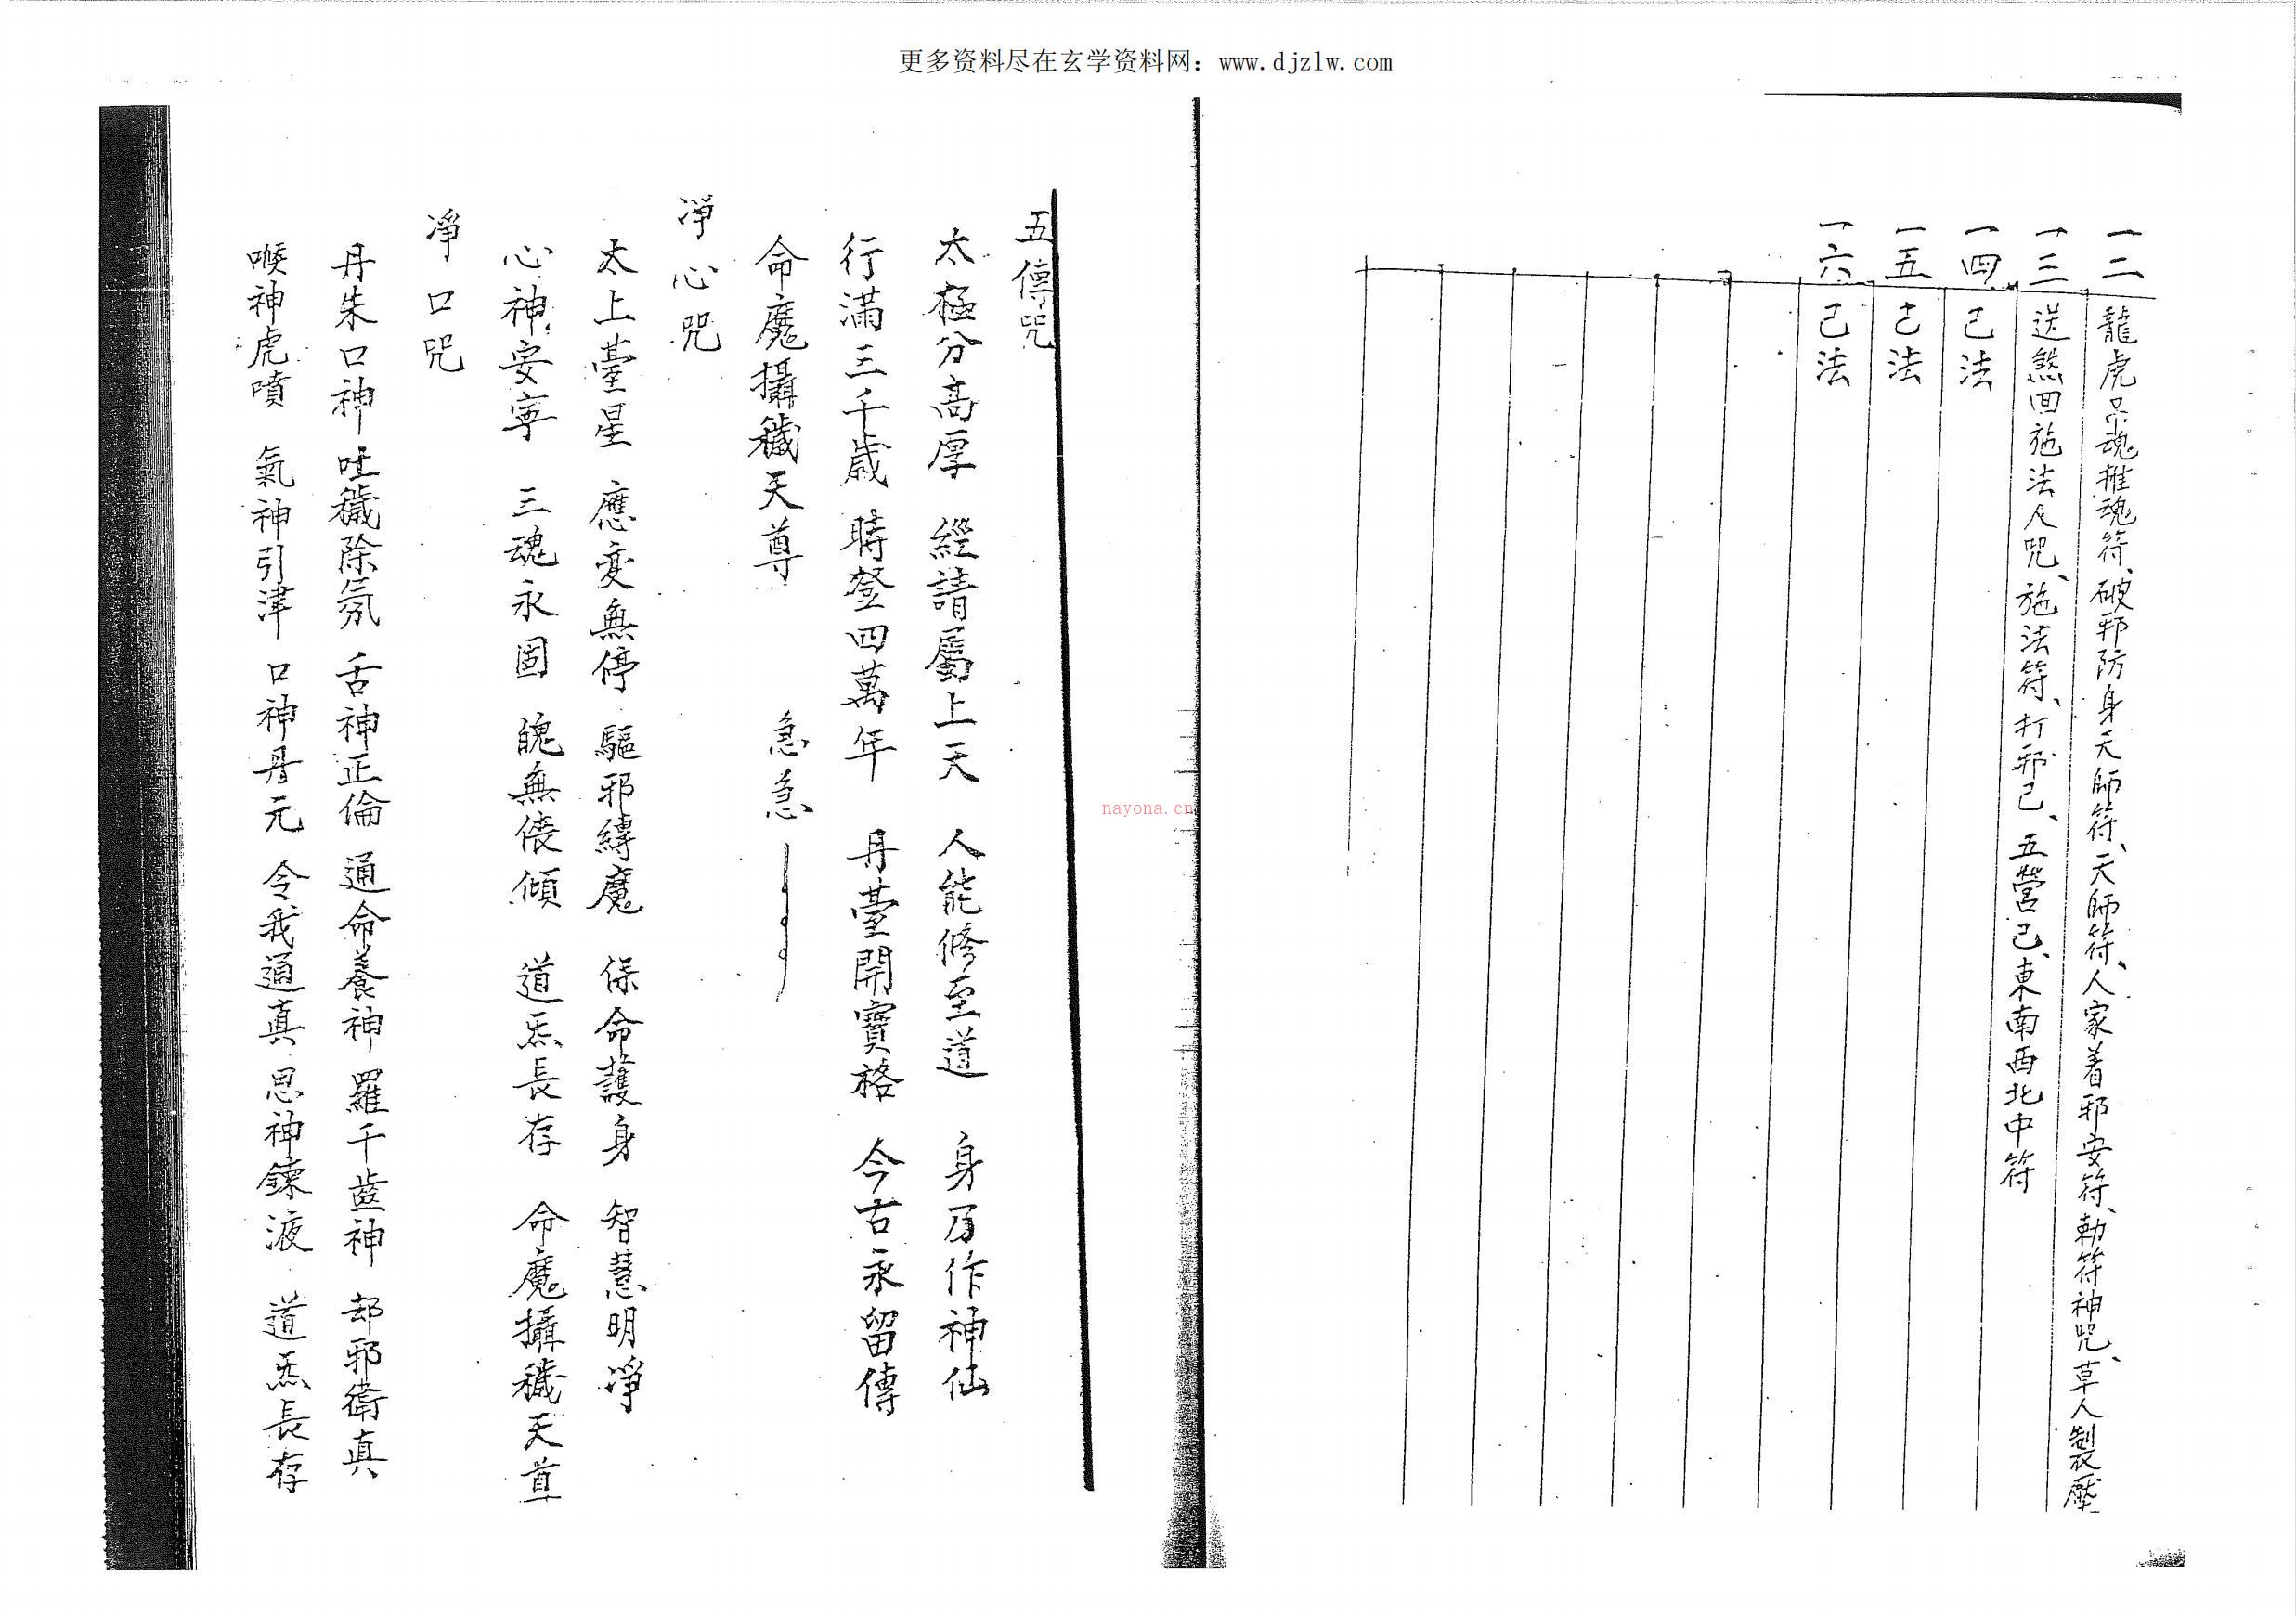 更多资料尽在玄学资料网：www.djzlw.com
一二 龍虎吊魂推魂符、破邪防身天師符、天師符、人家着邪安符、勅符神咒、草人製壓
一三 送煞回施法人咒、施法符、打邪己、五營己、東南西北中符
一四 己法
一五 己法
一六 己法
nayona.cn
五傳咒
太極分高厚 經請屬上天 人能修至道 身乃作神仙
行滿三千歲 時登四萬年 丹臺開寶格 今古永留傳
命魔攝穢天尊 急急
淨心咒
太上臺星 應变無停 驅邪縛魔 保命護身 智慧明淨
心神安寧 三魂永固 魄無倀傾 道炁長存 命魔攝穢天尊
淨口咒
丹朱口神 吐穢除氛 舌神正倫 通命養神 羅千齒神 却邪衛真
喉神虎噴 氣神引津 口神丹元 令我通真 思神鍊液 道炁長存